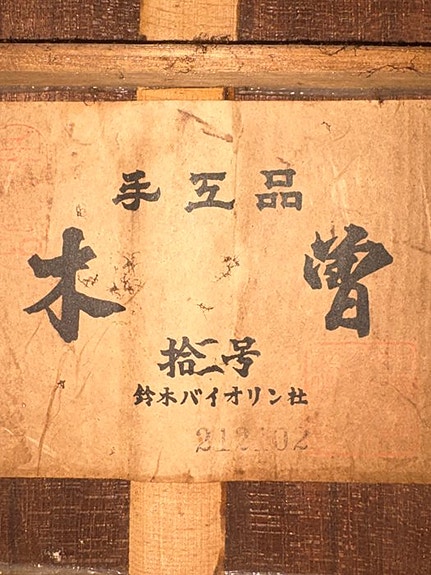 手工品
木曽
拾二号
鈴木バイオリン社
212102